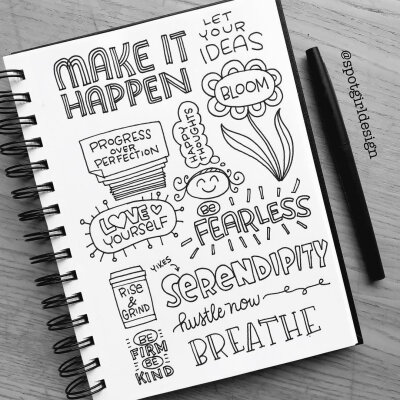 MAKE IT
HAPPEN
LET
YOUR
IDEAS
BLOOM
PROGRESS
OVER
PERFECTION
HAPPY
THOUGHTS
LOVE
YOURSELF
BE
FEARLESS
YIKES
SERENDIPITY
RISE
&
GRIND
hustle now
BREATHE
BE
FIRM
BE
KIND
@spotgirldesign